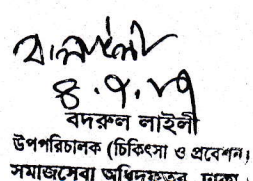 ৪.৭.১৭
বদরুল লাইলী
উপপরিচালক (চিকিৎসা ও প্রবেশন)
সমাজসেবা অধিদফতর, ঢাকা।